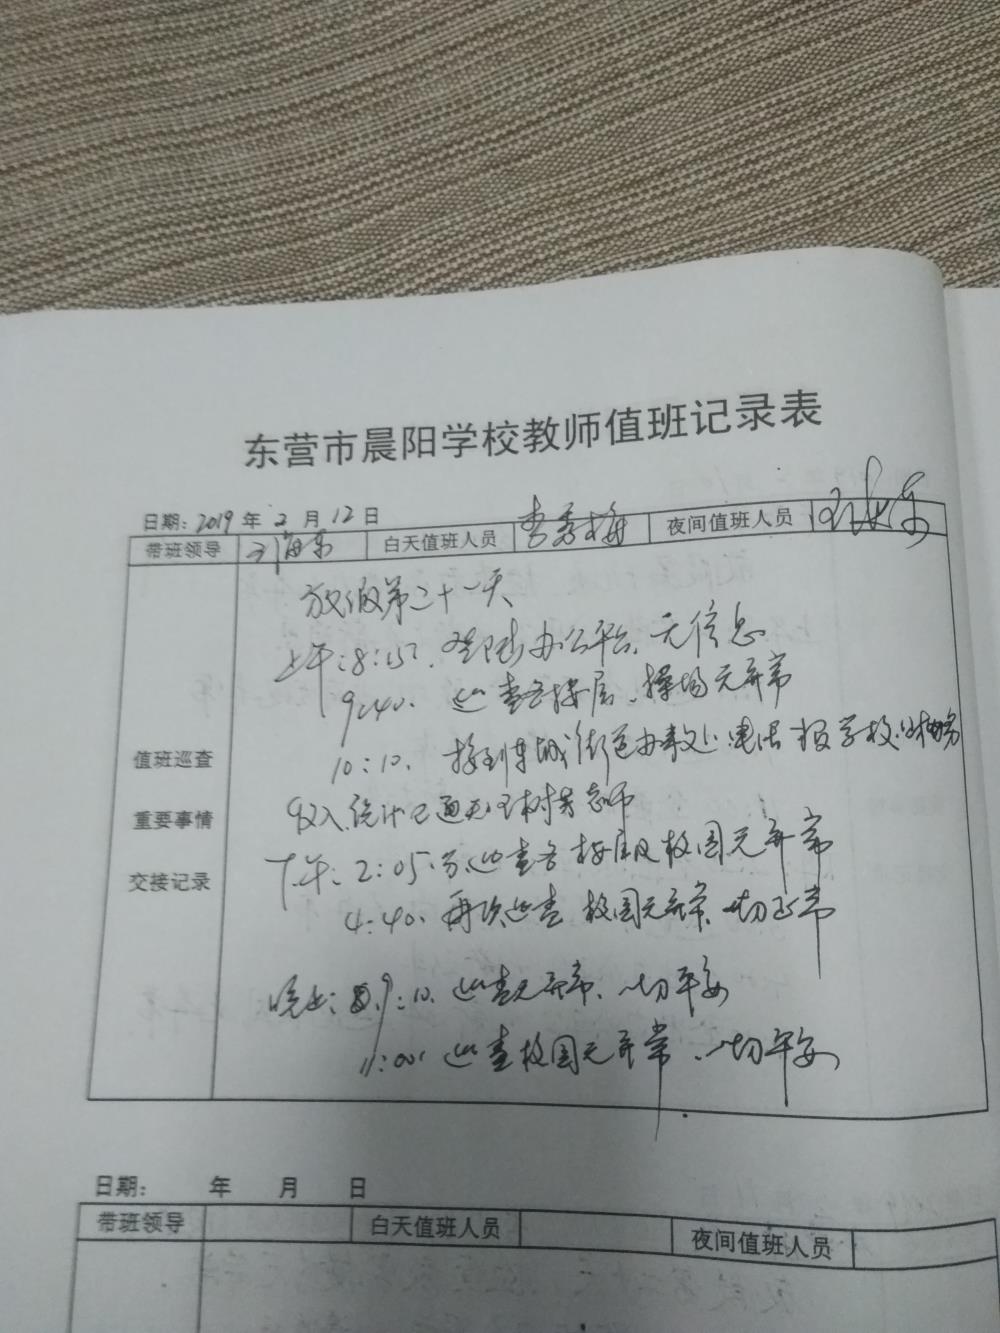 东营市晨阳学校教师值班记录表
日期: 2019 年 2 月 12 日
带班领导 白天值班人员 李秀梅 夜间值班人员
放假第二十一天
上午: 8:15. 登陆办公平台, 无信息
9:40. 巡查各楼层、操场无异常
10:10. 接到东城街道办事处电话 报学校
收入统计已通知王树芳老师
下午: 2:05分巡查各楼层及校园无异常
4:40. 再次巡查校园无异常, 一切正常
晚上: 9:10. 巡查无异常, 一切平安
11:00 巡查校园无异常, 一切平安
值班巡查
重要事情
交接记录
日期: 年 月 日
带班领导 白天值班人员 夜间值班人员